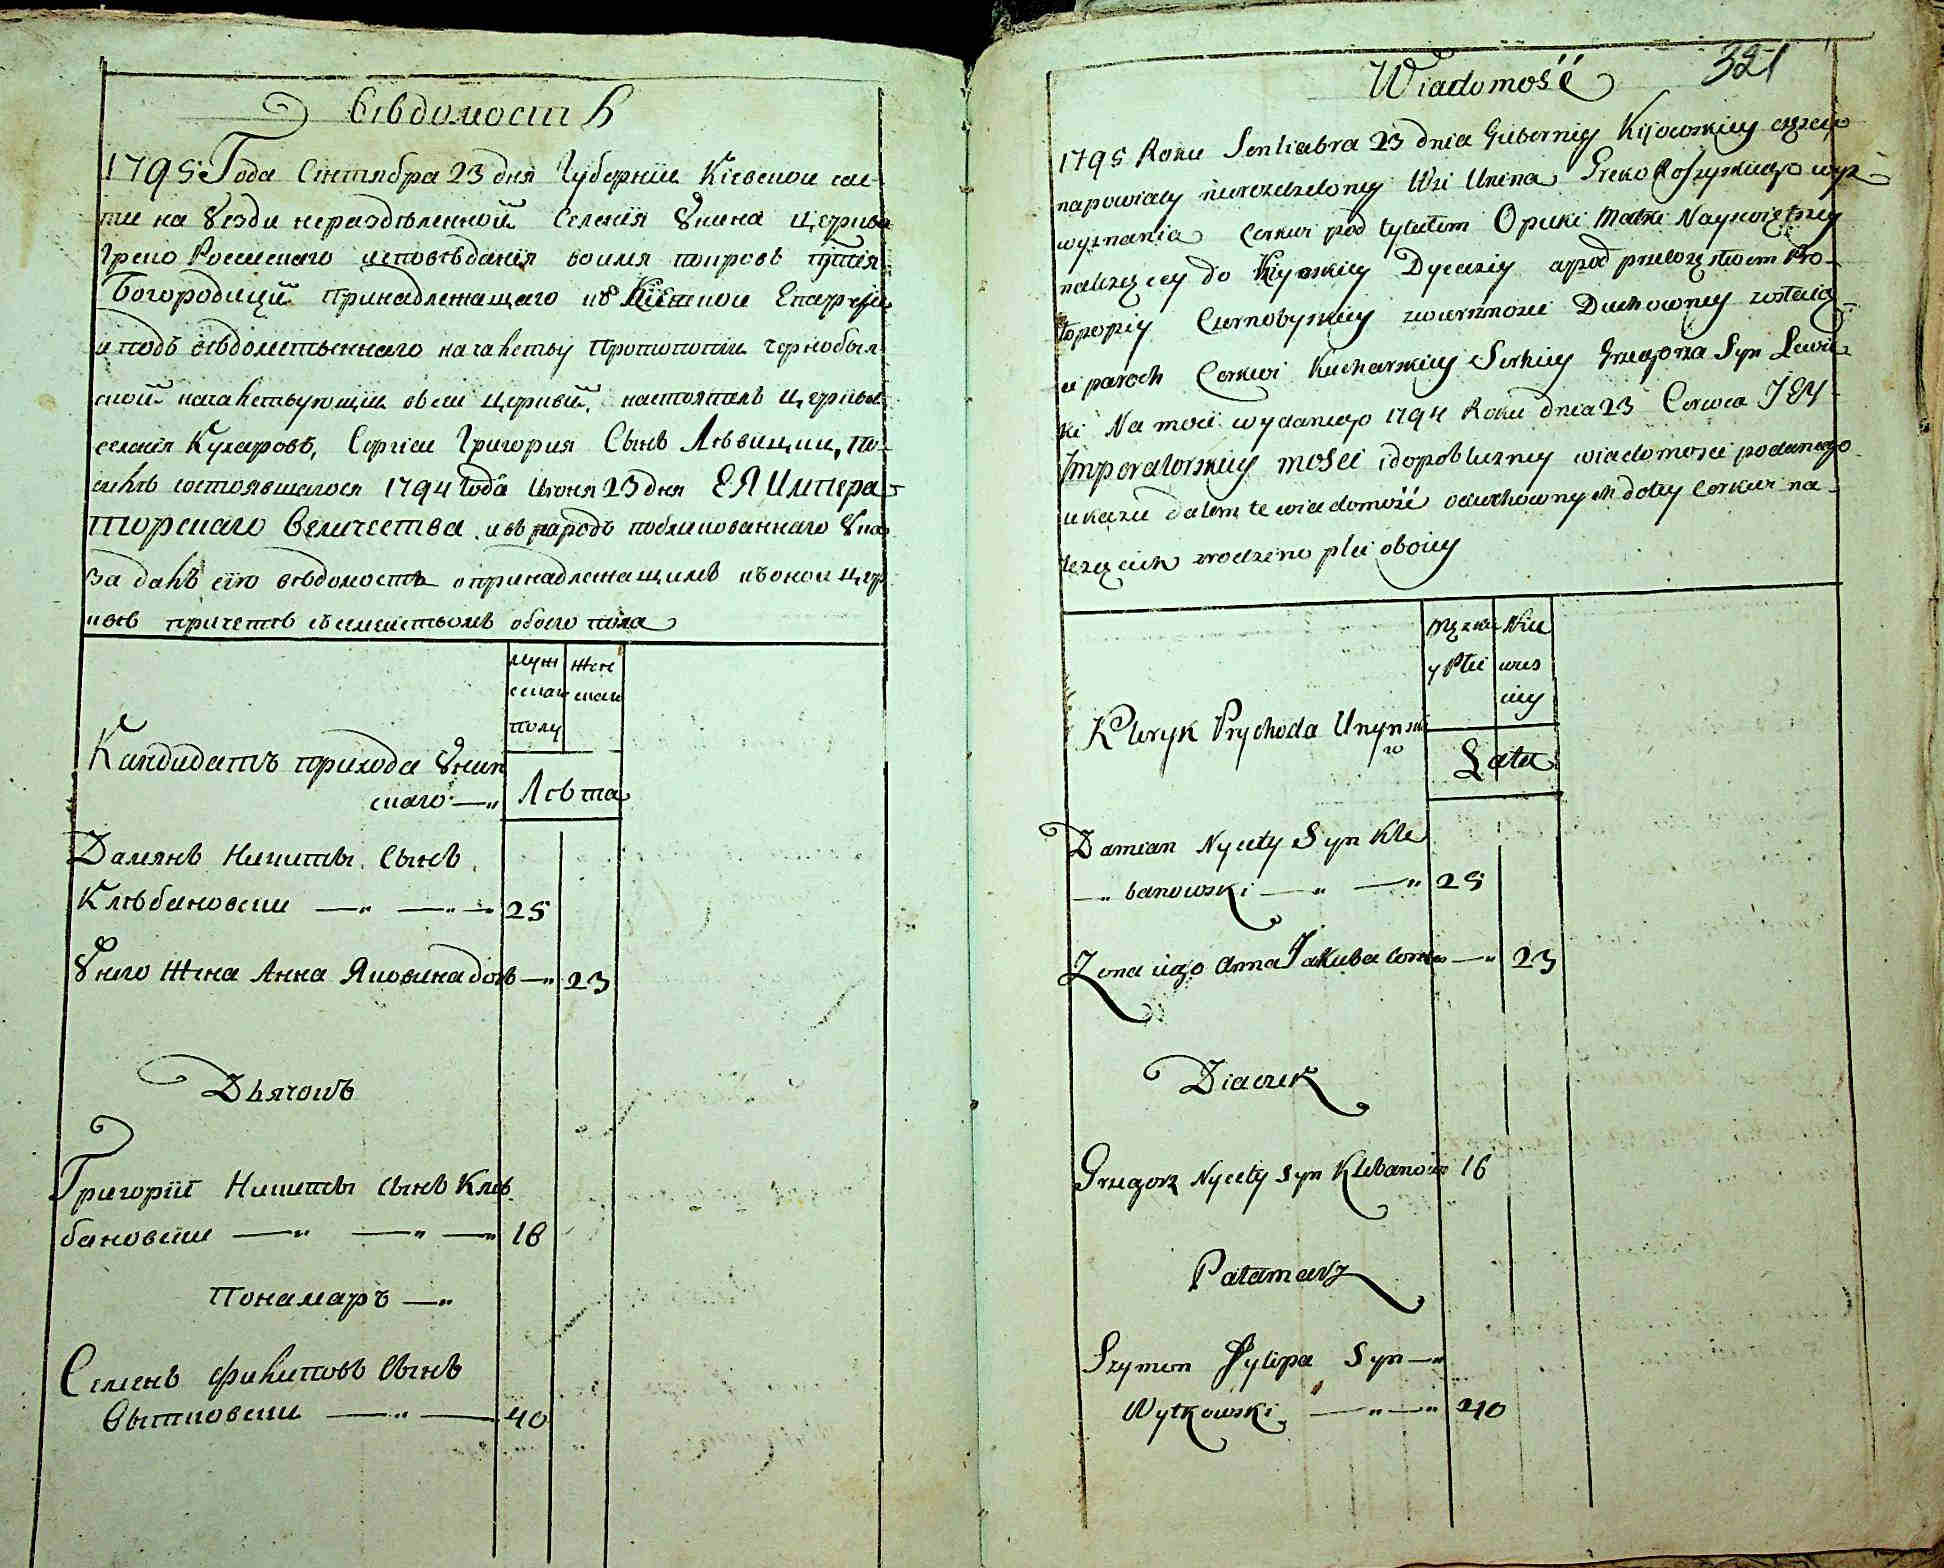 Вѣдомость
1795 Года Сентября 23 дня Губернїи Кїевской час-
ти на уезди нераздѣленной Селенїя Унина Церкви
Греко Россискаго исповѣданїя во имя покровѣ
Богородицы принадлежащаго въ Кїевской Епархїи
и подъ вѣдомственнаго начальству Протопопїи Чернобыл-
ской началствующїи овеи Церквїи, настоятель Церкви
селенїя Кухаровъ, Сергїи Григория Сынъ Лѣвицкии, по-
силѣ состоявшагося 1794 Года Июня 23 дня ЕЯ Импера-
торскаго Величества и въ народъ публикованнаго Ука-
за далъ сїю вѣдомость о принадлежащимъ къ оной Цер
квѣ причетѣ съ семействомъ обоего пола
муж жен
ескаг скаго
полу
Кандидатъ прихода Унин
скаго
Лѣта
Дамянъ Никиты Сынъ
Клѣбановски 25
У него Жена Анна Яковина дочь 23
Дьячокъ
Григорїй Никиты сынъ Клѣ
бановски 16
Пономаръ
Семенъ Филиповъ Сынъ
Вытковски 40
321
Wiadomość
1795 Roku Senliabra 23 dnia Guberniy Kijowskiey części
napowiaty nierozdzeloney Wsi Unina Greko Roszyskiego wyz-
wyznania Cerkwi pod tytułem Opieki Matki Nayswiętszey
należącey do Kiyowskiey Dyecezyi a pod przełożęstwem Pro-
topopiy Czernobylskiey zwierzchnosci Duchowney zostaią-
cy paroch Cerkwi Kucharskiey Serhiey Grzegorza Syn Lewic-
ki Na mocy wydanego 1794 Roku dnia 23 Czerwca JEY
Imperatorskiey mosci i dopobliczney wiadomosci podanego
ukazu dalem te wiadomość oduchownych do tey Cerkwi na-
leżących zrodzino płci oboiey
Męzki Nie
y Płci wies
ciey
Kleryk Prychoda Unynsk
Lata
Damian Nycety Syn Kle
banowski 25
Zona iego Anna Jakuba corka 23
Diaczek
Grzegorz Nycety Syn Klebanow 16
Patamarz
Szymon Fylipa Syn
Wytkowski 40